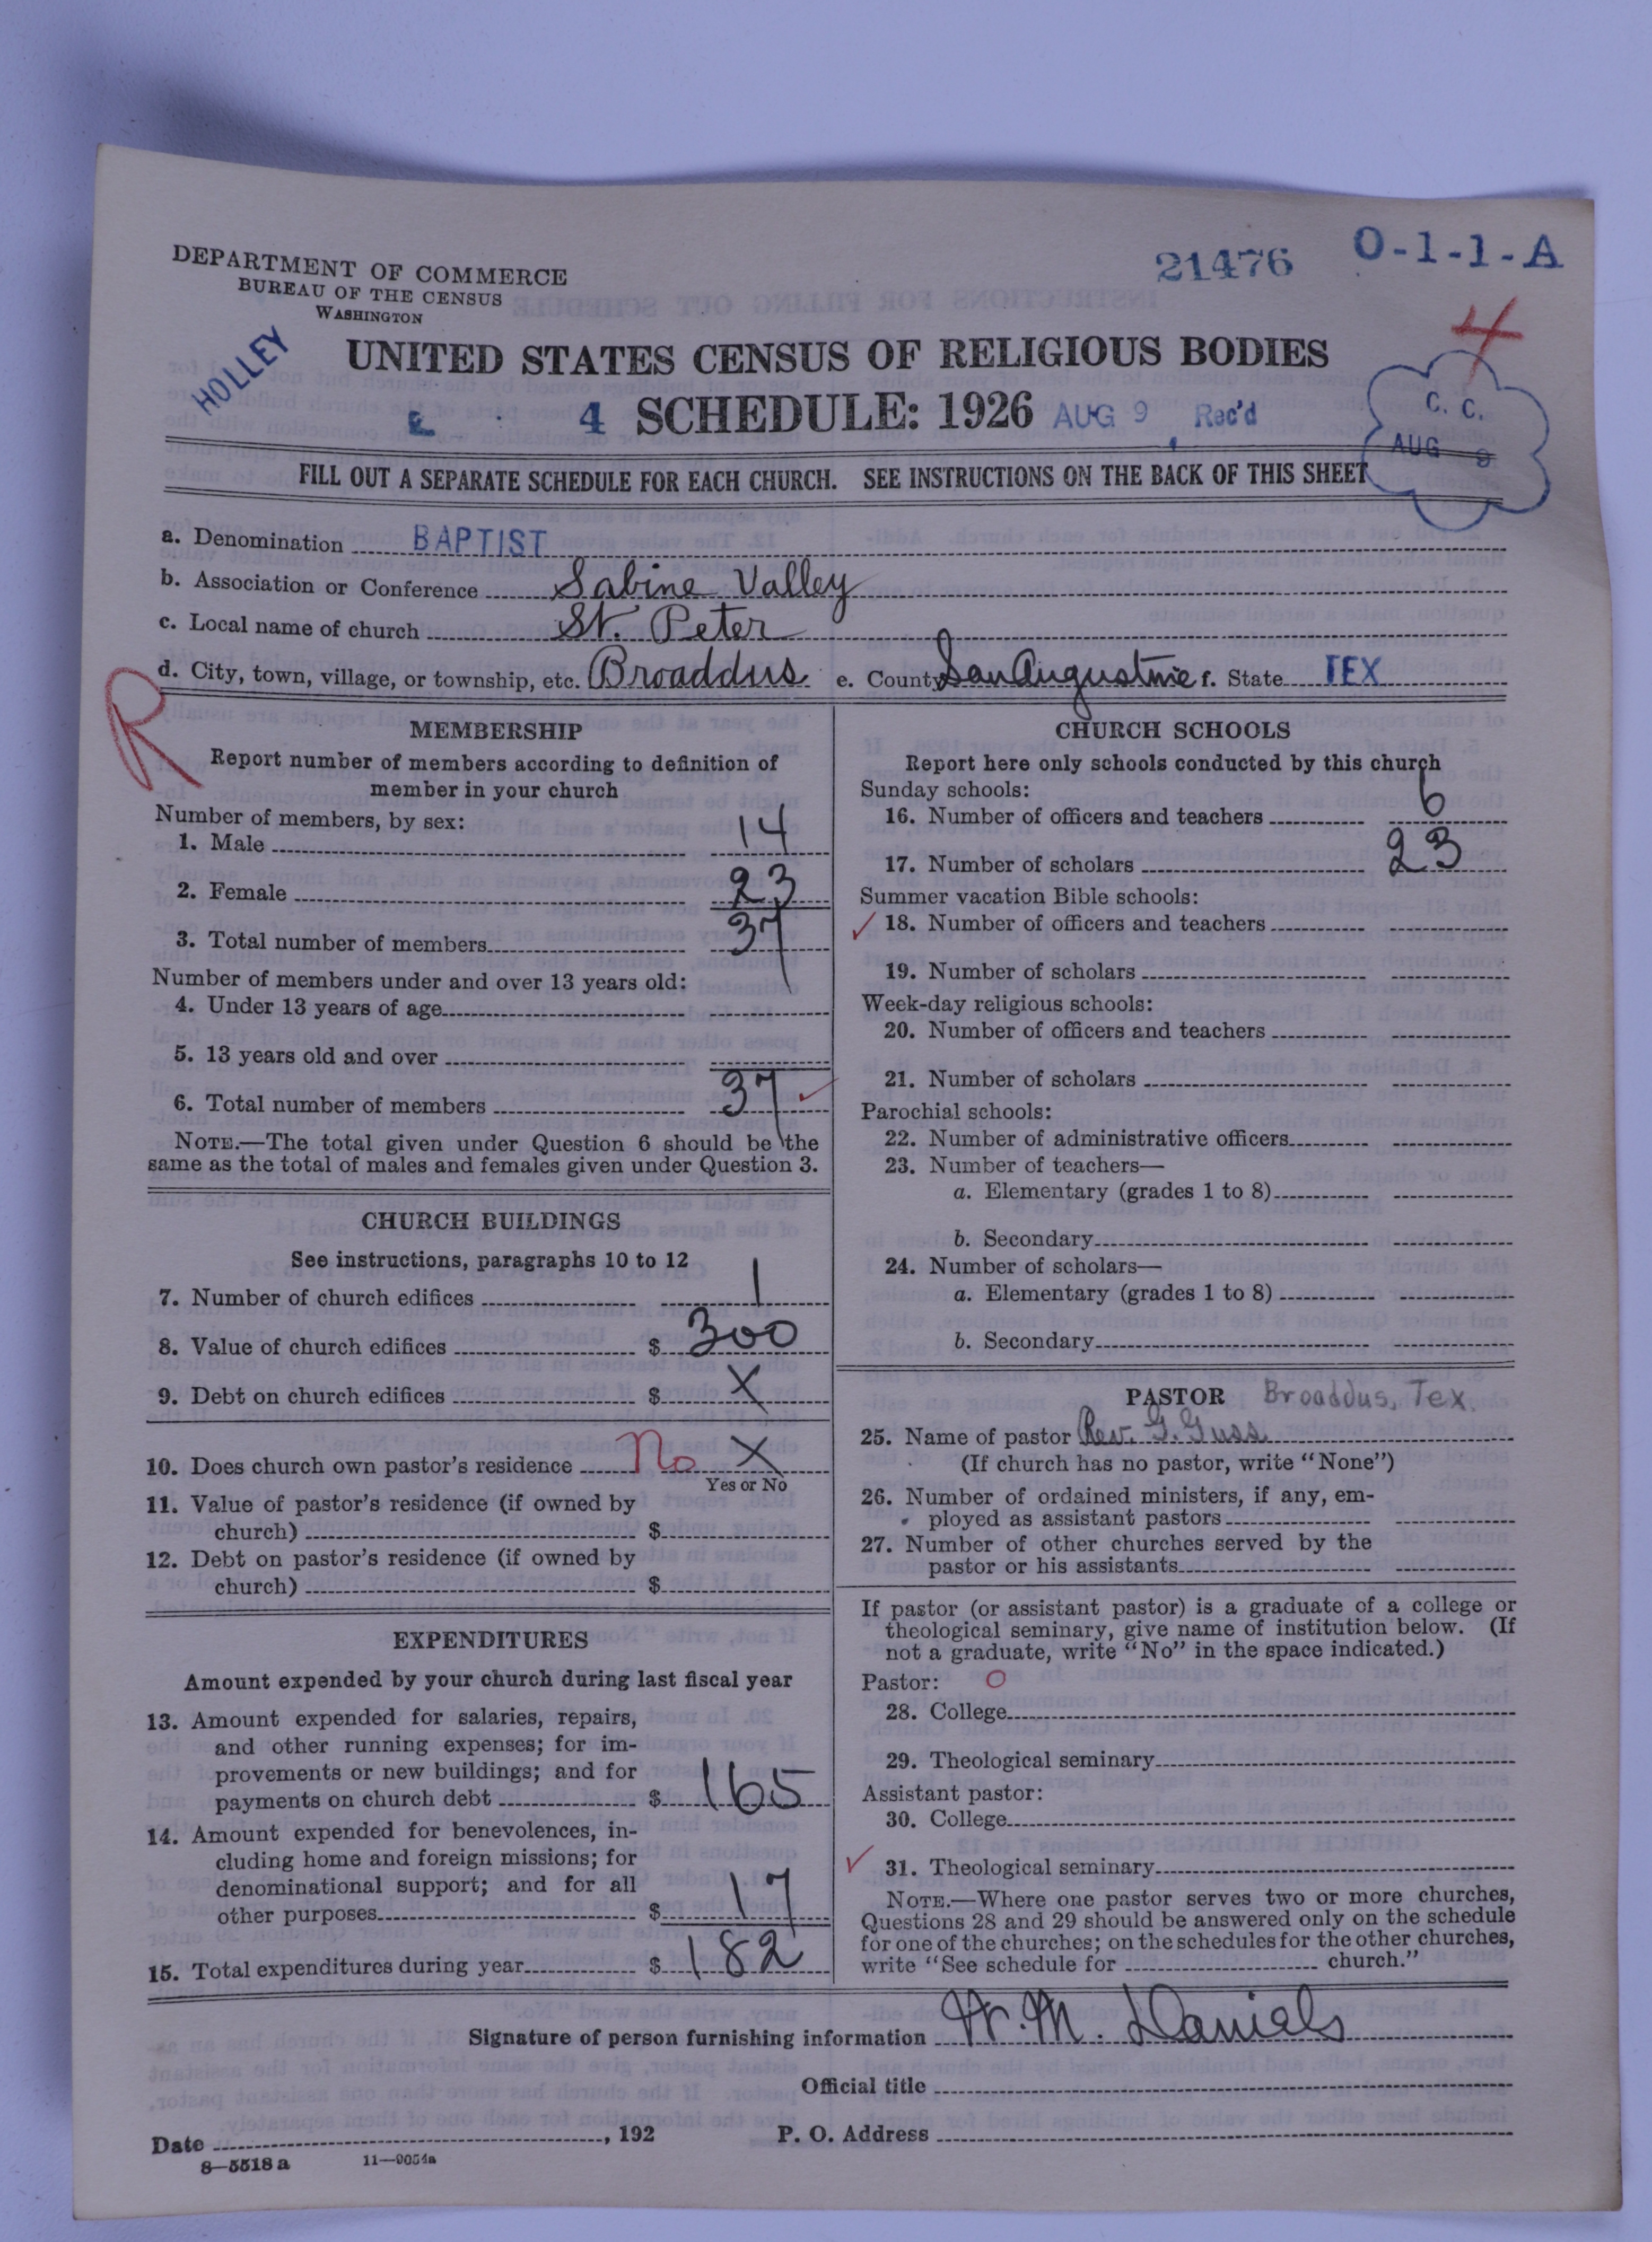 DEPARTMENT OF COMMERCE
BUREAU OF THE CENSUS
WASHINGTON
21476 O-1-1-A
4
HOLLEY
UNITED STATES CENSUS OF RELIGIOUS BODIES
4 SCHEDULE: 1926 AUG 9 Rec'd
C. C.
AUG 9
FILL OUT A SEPARATE SCHEDULE FOR EACH CHURCH. SEE INSTRUCTIONS ON THE BACK OF THIS SHEET
a. Denomination BAPTIST
b. Association or Conference Sabine Valley
c. Local name of church St. Peter
d. City, town, village, or township, etc. Broaddus e. County San Augustine f. State TEX
R
MEMBERSHIP
Report number of members according to definition of
member in your church
Number of members, by sex:
1. Male 14
2. Female 23
3. Total number of members 37
Number of members under and over 13 years old:
4. Under 13 years of age
5. 13 years old and over
6. Total number of members 37
NOTE.—The total given under Question 6 should be the
same as the total of males and females given under Question 3.
CHURCH BUILDINGS
See instructions, paragraphs 10 to 12
7. Number of church edifices 1
8. Value of church edifices $ 300
9. Debt on church edifices $ X
10. Does church own pastor's residence No X
Yes or No
11. Value of pastor's residence (if owned by
church) $
12. Debt on pastor's residence (if owned by
church) $
EXPENDITURES
Amount expended by your church during last fiscal year
13. Amount expended for salaries, repairs,
and other running expenses; for im-
provements or new buildings; and for
payments on church debt $ 165
14. Amount expended for benevolences, in-
cluding home and foreign missions; for
denominational support; and for all
other purposes $ 17
15. Total expenditures during year $ 182
CHURCH SCHOOLS
Report here only schools conducted by this church
Sunday schools:
16. Number of officers and teachers 6
17. Number of scholars 23
Summer vacation Bible schools:
✓ 18. Number of officers and teachers
19. Number of scholars
Week-day religious schools:
20. Number of officers and teachers
21. Number of scholars
Parochial schools:
22. Number of administrative officers
23. Number of teachers—
a. Elementary (grades 1 to 8)
b. Secondary
24. Number of scholars—
a. Elementary (grades 1 to 8)
b. Secondary
PASTOR Broaddus, Tex.
25. Name of pastor Rev. G. Guss
(If church has no pastor, write "None")
26. Number of ordained ministers, if any, em-
ployed as assistant pastors
27. Number of other churches served by the
pastor or his assistants
If pastor (or assistant pastor) is a graduate of a college or
theological seminary, give name of institution below. (If
not a graduate, write "No" in the space indicated.)
Pastor: O
28. College
29. Theological seminary
Assistant pastor:
30. College
✓ 31. Theological seminary
NOTE.—Where one pastor serves two or more churches,
Questions 28 and 29 should be answered only on the schedule
for one of the churches; on the schedules for the other churches,
write "See schedule for church."
Signature of person furnishing information W. M. Daniels
Official title
Date , 192 P. O. Address
8—5518 a 11—9054a